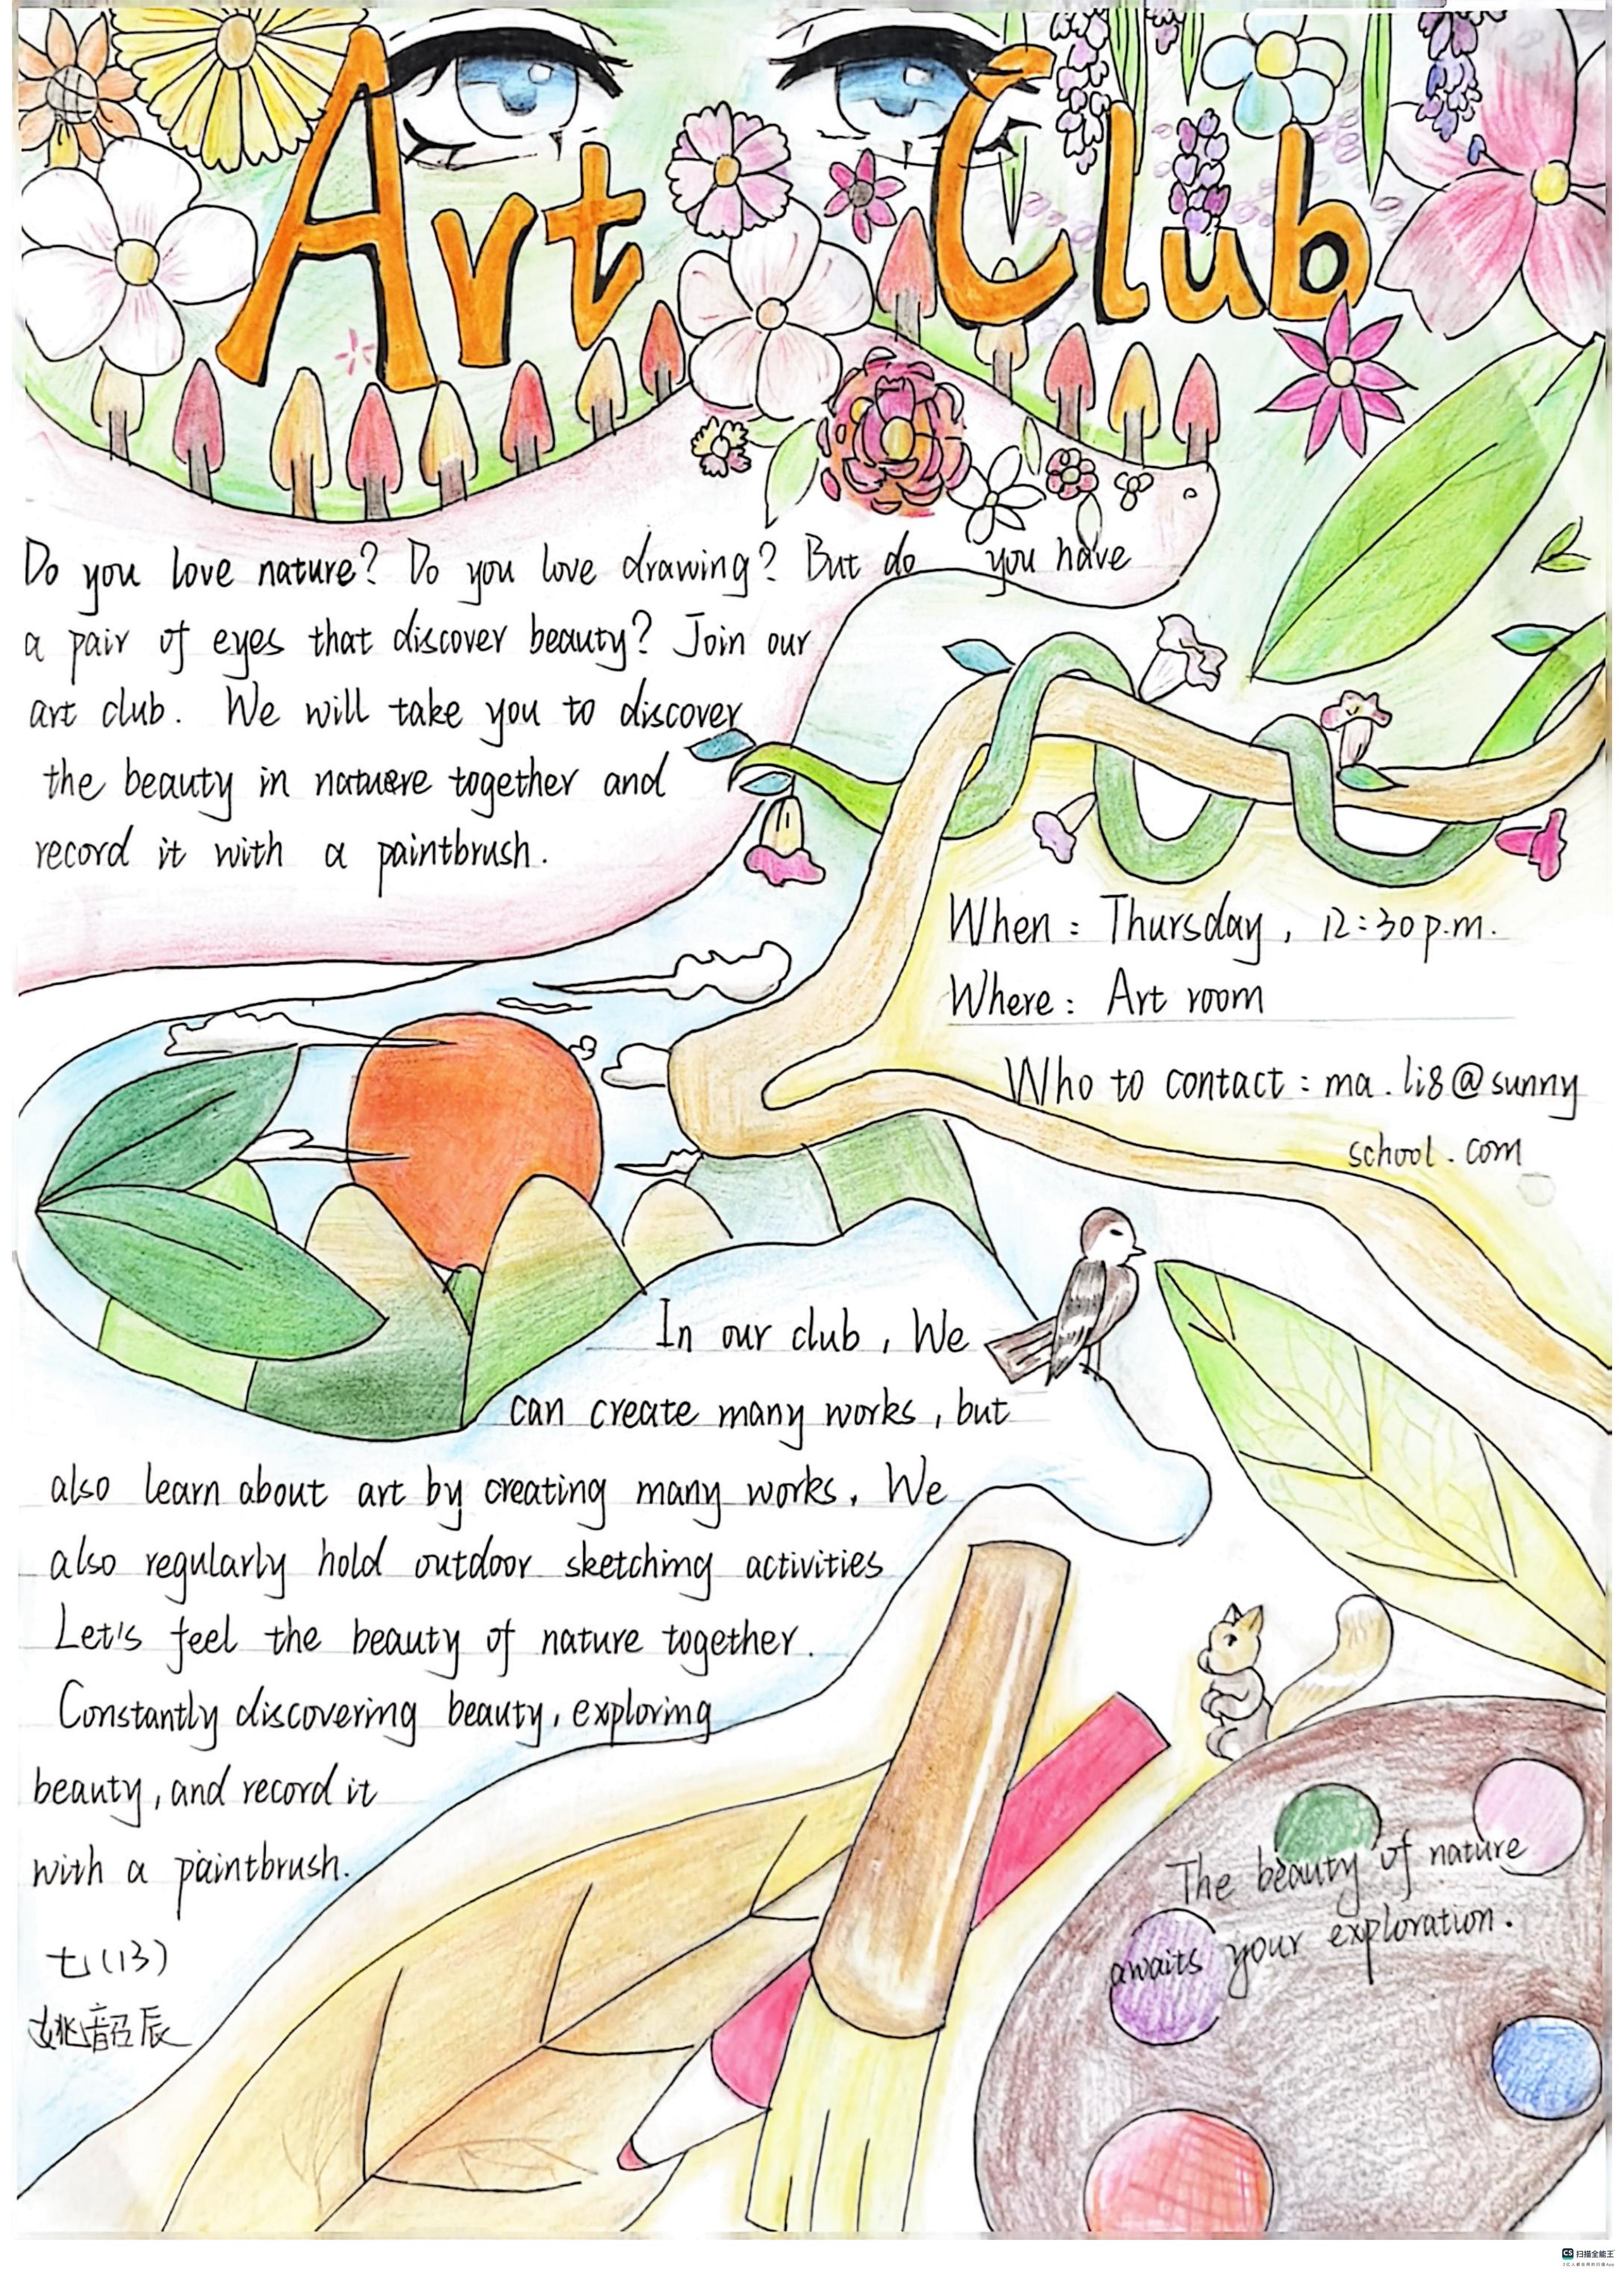 Art Club
Do you love nature? Do you love drawing? But do you have
a pair of eyes that discover beauty? Join our
art club. We will take you to discover
the beauty in nature together and
record it with a paintbrush.
When : Thursday, 12:30 p.m.
Where : Art room
Who to contact : ma.li8@sunny
school.com
In our club, We
can create many works, but
also learn about art by creating many works. We
also regularly hold outdoor sketching activities
Let's feel the beauty of nature together.
Constantly discovering beauty, exploring
beauty, and record it
with a paintbrush.
The beauty of nature
awaits your exploration.
七(13)
姚韶辰
CS 扫描全能王